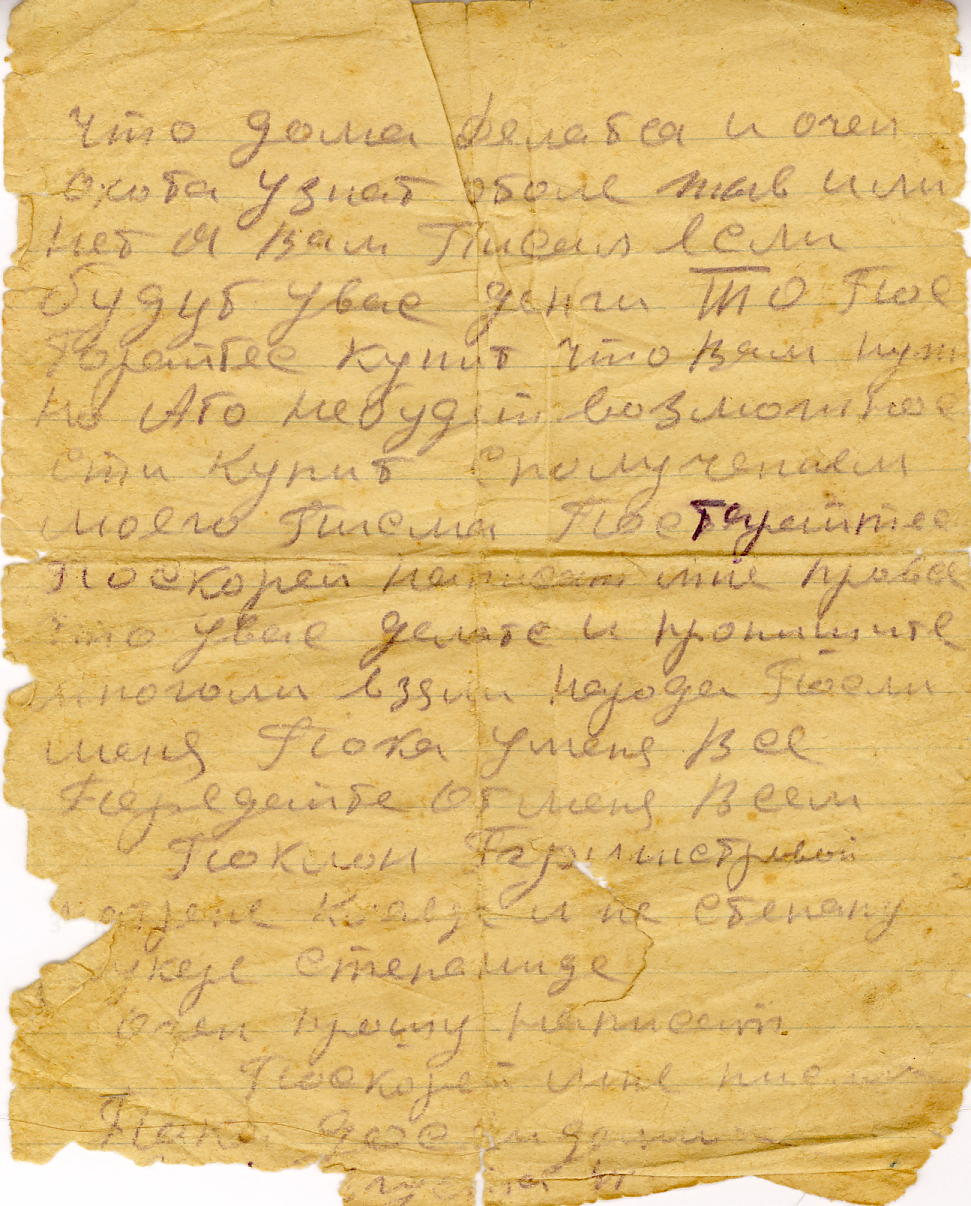 что дома делатса и очен
охота узнат отоле жыв или
нет я вам писал если
будут увас денги то пос
торайтес купит что вам нуж
но Ато небудит возможнос
сти купит сполученаем
моего писма постарайтес
поскорей написат мне провса
что увас делатс и пропишите
многоли взяли народа после
меня пока уменя все
передайте от меня всем
поклон
не степану
степаниде
очен прошу написат
поскорей мне писмо
пока досвидания